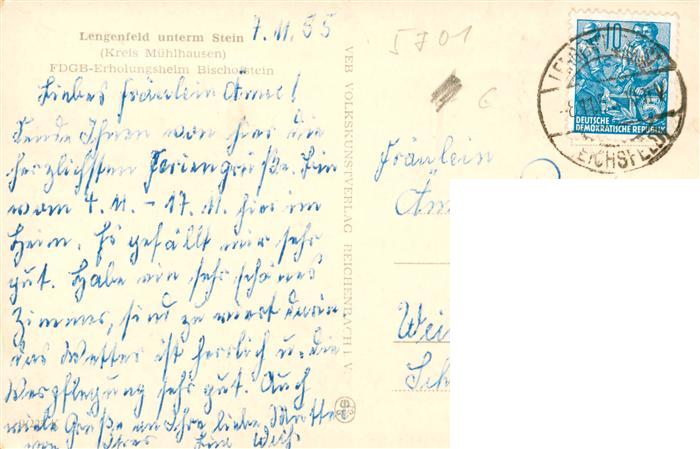 Lengenfeld unterm Stein
(Kreis Mühlhausen)
FDGB-Erholungsheim Bischofstein
7.11.55
Liebes Fräulein Änne!
Sende Ihnen von hier die
herzlichsten Feriengrüße. Bin
vom 4.11. - 17.11. hier im
Heim. Es gefällt mir sehr
gut. Habe ein sehr schönes
Zimmer, sind zu viert darin
das Wetter ist herrlich u. die
Verpflegung sehr gut. Auch
viele Grüße an Ihre liebe Mutter
von Ihrer
VEB VOLKSKUNSTVERLAG REICHENBACH i. V.
5701
6
Fräulein
Än
Wei
Sch
10
DEUTSCHE
DEMOKRATISCHE REPUBLIK
EICHSFELD